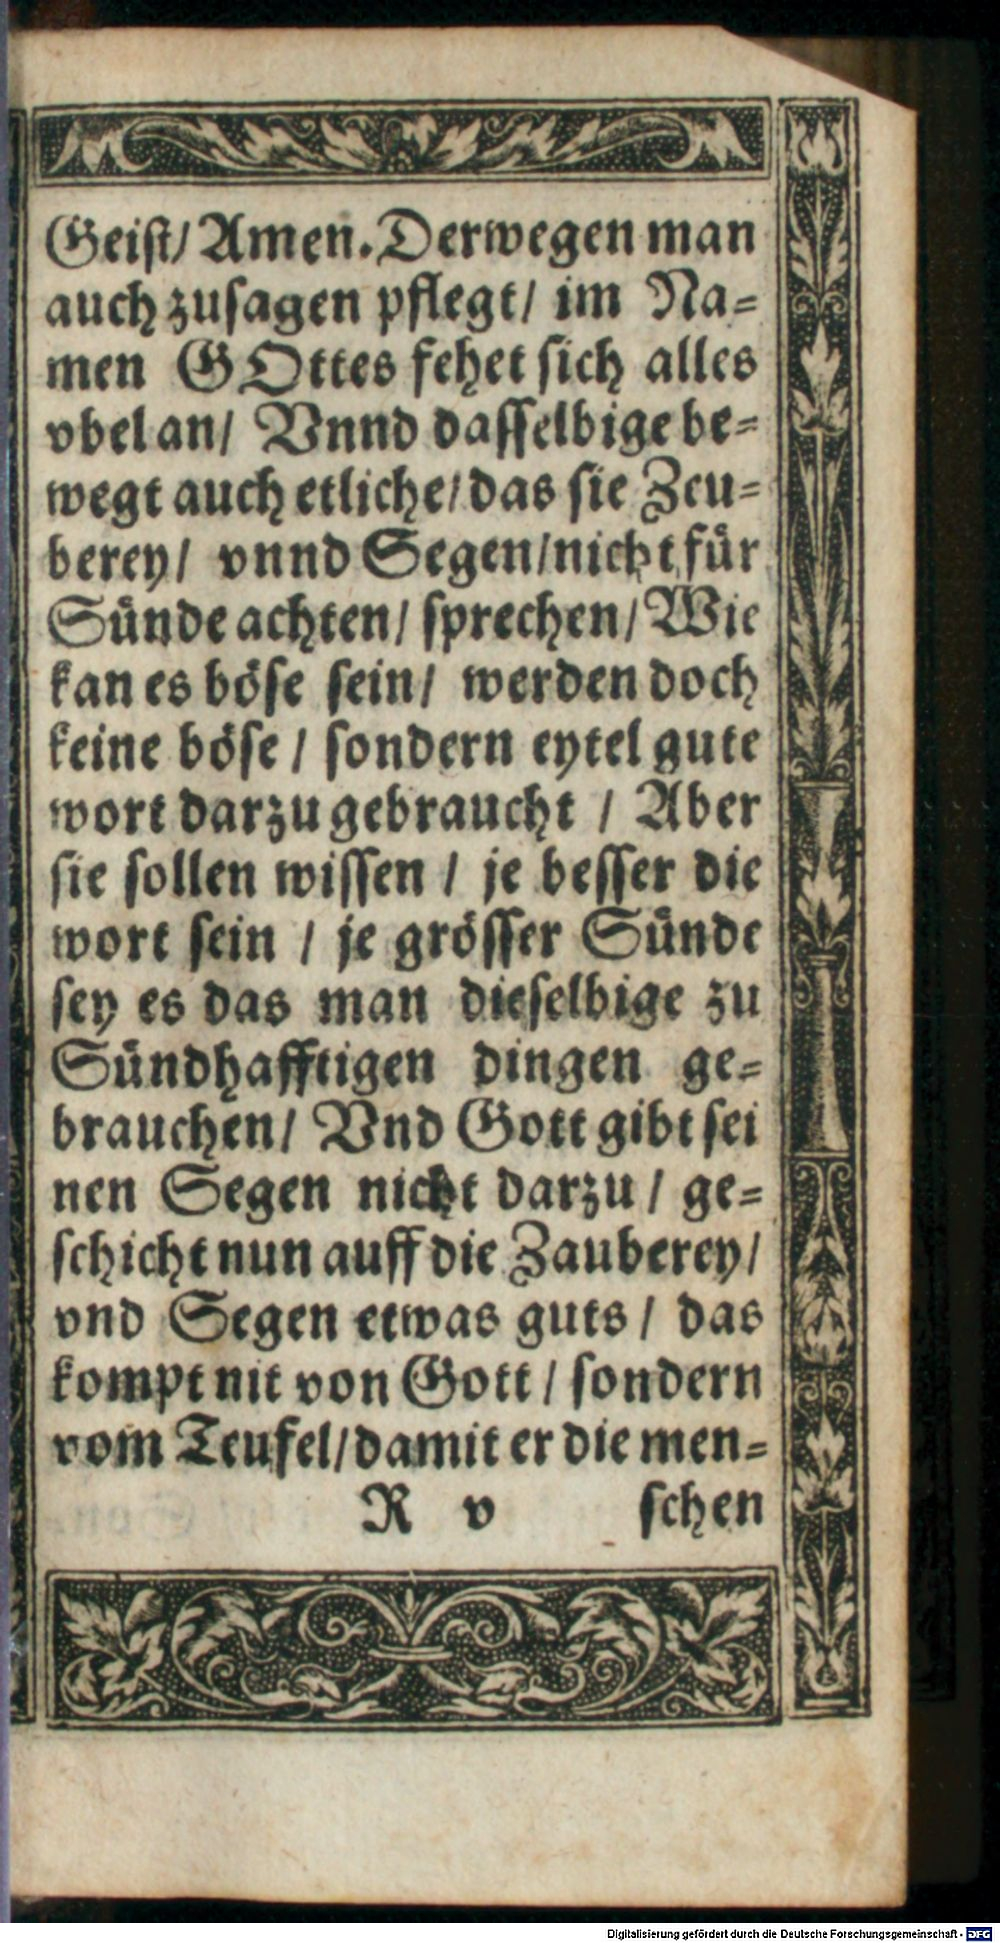 Geist/ Amen. Derwegen man
auch zusagen pflegt/ im Na=
men GOttes fehet sich alles
vbel an/ Vnnd dasselbige be=
wegt auch etliche/ das sie Zeu=
berey/ vnnd Segen/nicht für
Sünde achten/ sprechen/ Wie
kan es böse sein/ werden doch
keine böse / sondern eytel gute
wort darzu gebraucht / Aber
sie sollen wissen / je besser die
wort sein / je grösser Sünde
sey es das man dieselbige zu
Sündhafftigen dingen ge=
brauchen/ Vnd Gott gibt sei
nen Segen nicht darzu / ge=
schicht nun auff die Zauberey/
vnd Segen etwas guts / das
kompt nit von Gott / sondern
vom Teufel/damit er die men=
R v schen
Digitalisierung gefördert durch die Deutsche Forschungsgemeinschaft - DFG